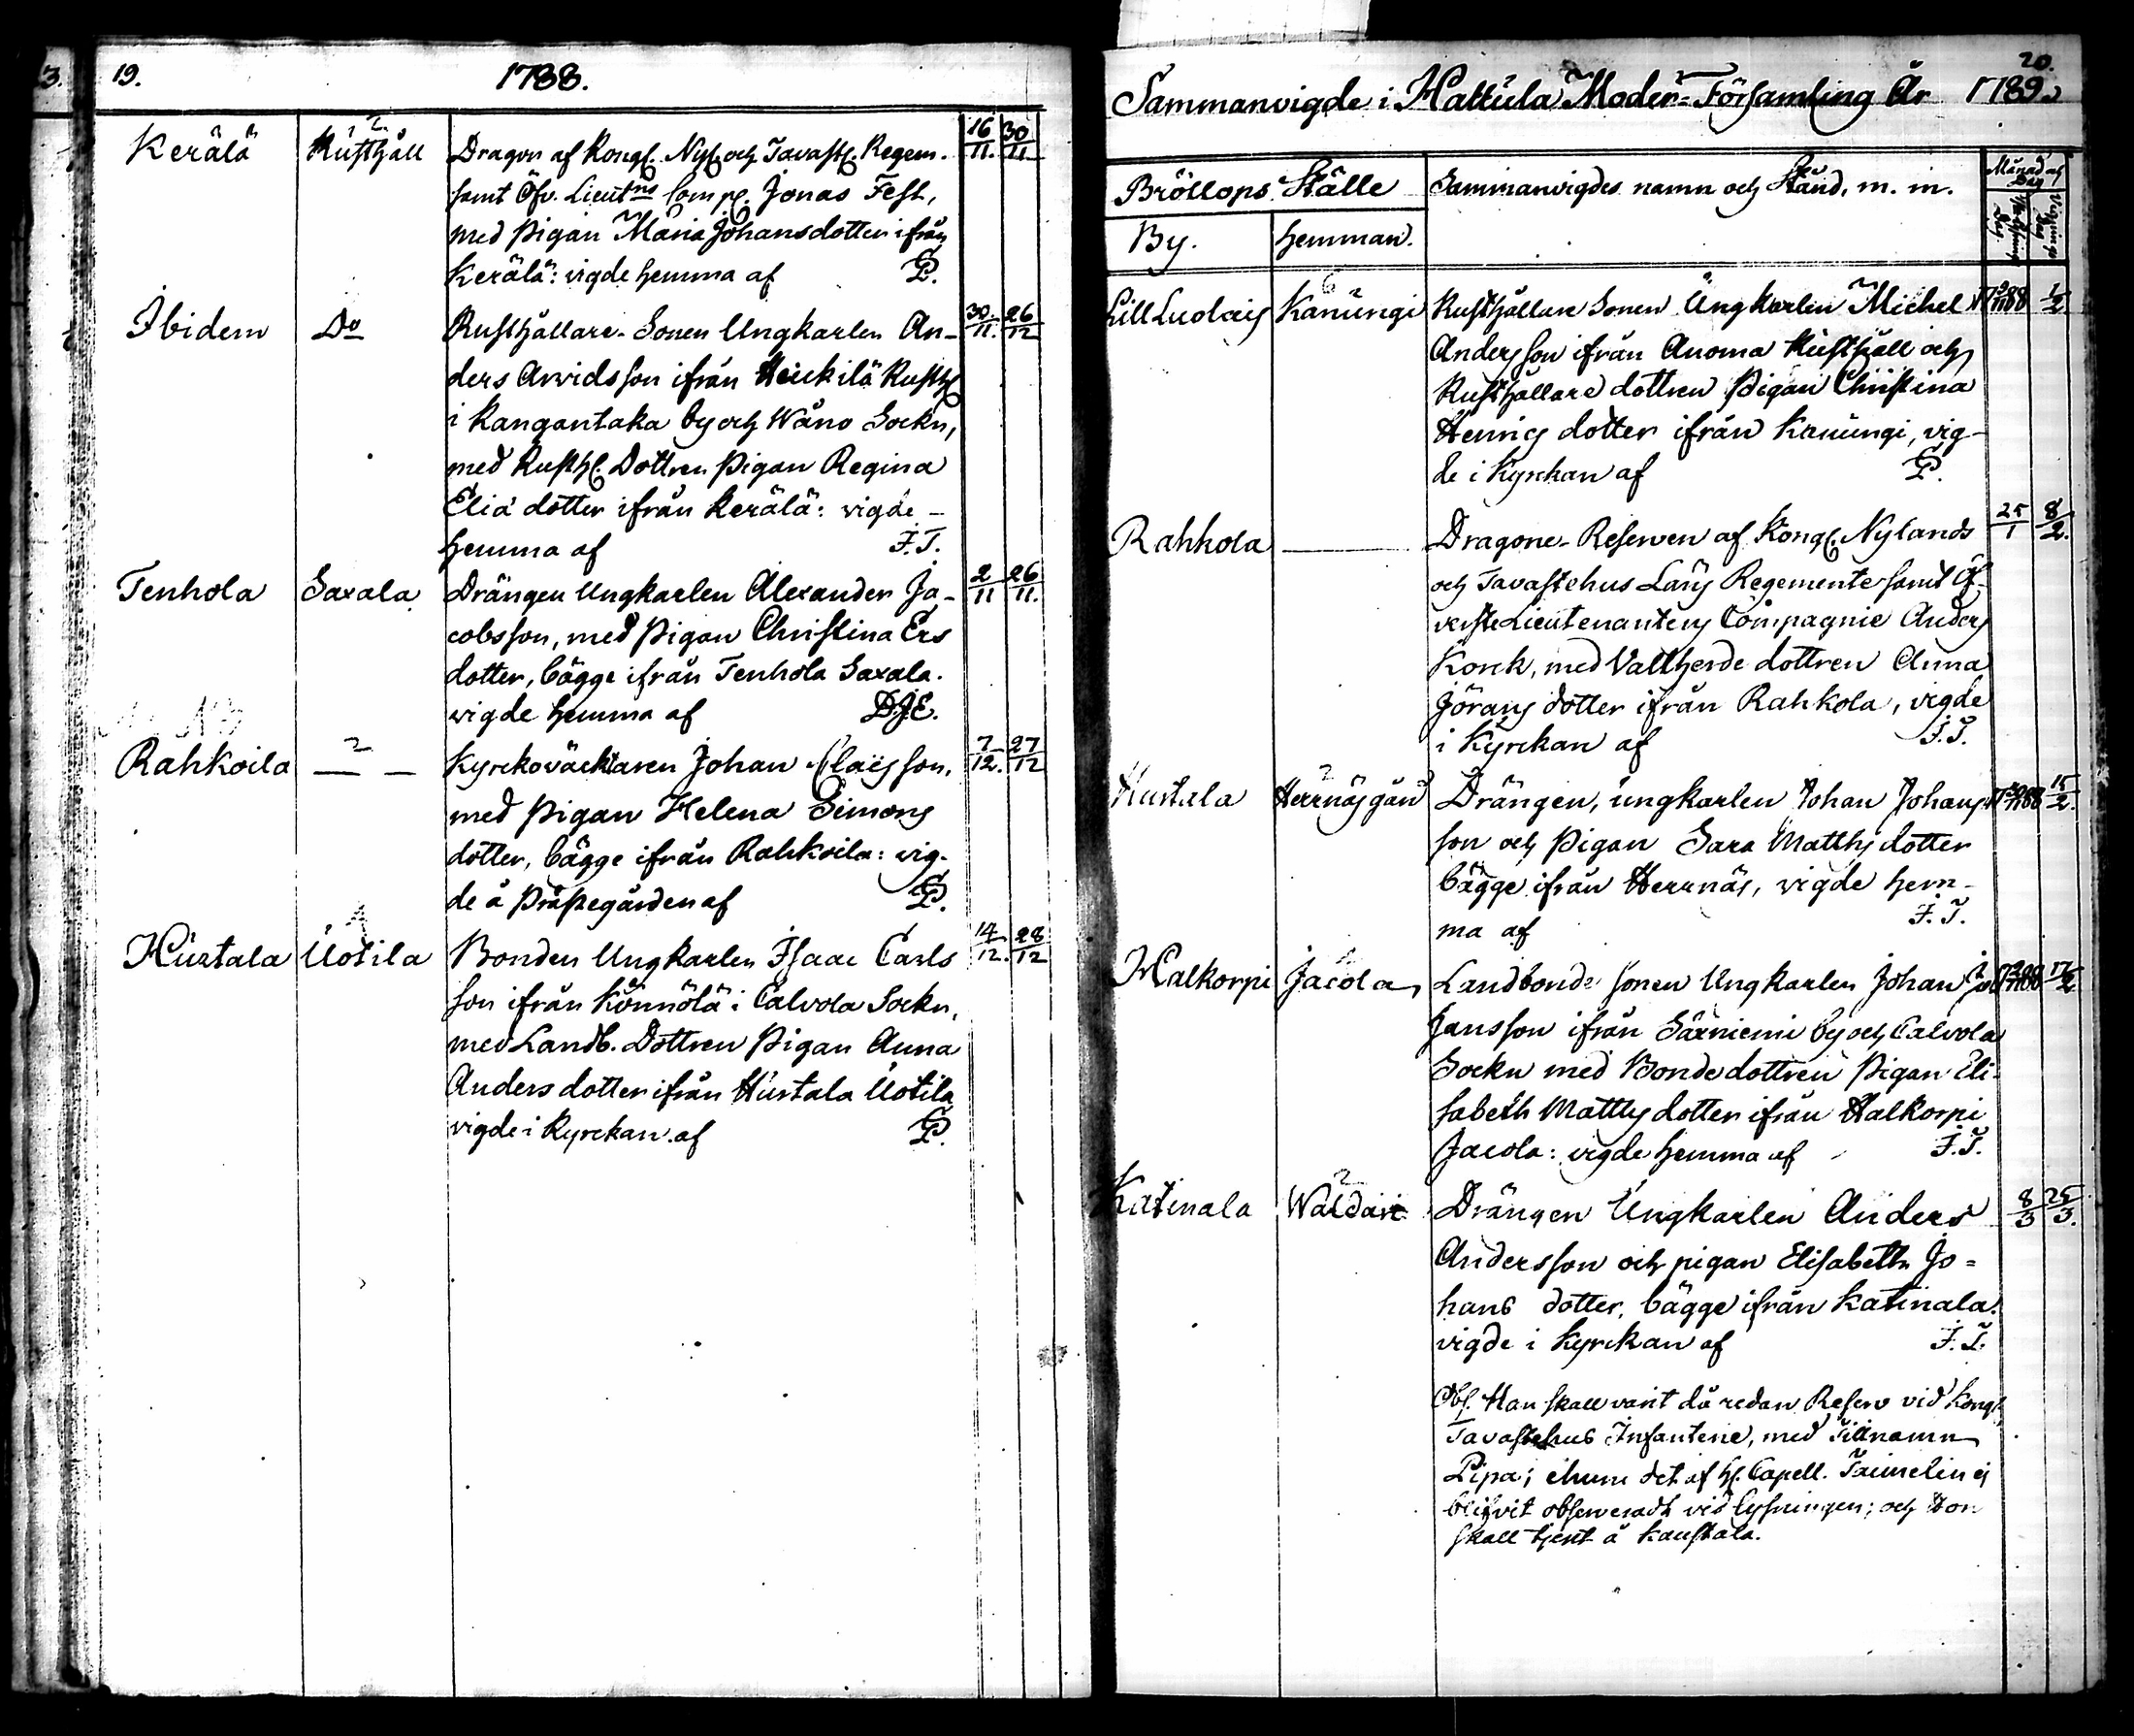 19. 1788.
Kerälä Rusthåll Dragon af Kongl. Nyl. och Tavastl. Regem. 16/11. 30/11
samt Öfv. Lieutns Comp. Jonas Fest,
med Pigan Maria Johansdotter ifrån
Kerälä: vigde hemma af P.
Ibidem Do Rusthållare-Sonen Ungkarlen An- 30/11. 26/12
ders Arvidsson ifrån Heickilä Rusth.
i Kangantaka by och Wåno Sockn,
med Rusth. Dottren Pigan Regina
Eliæ dotter ifrån Kerälä: vigde –
hemma af F.T.
Tenhola Saxala Drängen Ungkarlen Alexander Ja- 2/11 26/11.
cobsson, med Pigan Christina Ers
dotter, bägge ifrån Tenhola Saxala.
vigde hemma af D.J.E.
Rahkoila — — Kyrckoväcktaren Johan Claësson, 7/12. 27/12
med Pigan Helena Simons
dotter, bägge ifrån Rahkoila: vig-
de å Prästegården af P.
Hurtala Uotila Bonden Ungkarlen Isaac Carls 14/12. 28/12
son ifrån Könnölä i Calvola Sockn,
med Landb. Dottren Pigan Anna
Anders dotter ifrån Hurtala Uotila
vigde i Kyrckan af P.
20.
Sammanvigde i Hattula Moder-Församling År 1789.
Bröllops Ställe Sammanvigdes namn och Stånd, m. m. Månad och Dag
By. Hemman.
Lill Luolais Kanungi Rusthållare Sonen Ungkarlen Michel 1/2
Andersson ifrån Anoma Rusthåll och
Rusthållare dottren Pigan Christina
Henrics dotter ifrån Kanungi, vig-
de i Kyrckan af P.
Rahkola — Dragone-Reserven af Kongl. Nylands 25/1 8/2.
och Tavastehus Läns Regemente samt Öf-
verste Lieutenantens Compagnie Anders
Korck, med Vallherde dottren Anna
Jörans dotter ifrån Rahkola, vigde
i Kyrckan af F.T.
Hurtala Herrnäs gård Drängen, ungkarlen Johan Johans- 15/2.
son och Pigan Sara Matths dotter
bägge ifrån Herrnäs, vigde hem-
ma af F.T.
Halkorpi Jacola, Landbonde sonen Ungkarlen Johan Jo 17/2
hansson ifrån Särniemi by och Calvola
Sockn med Bondedottren Pigan Eli-
sabeth Matths dotter ifrån Halkorpi
Jacola: vigde hemma af F.T.
Katinala Waldari Drängen Ungkarlen Anders 8/3 25/3.
Andersson och pigan Elisabeth Jo=
hans dotter, bägge ifrån Katinala.
vigde i Kyrckan af F.T.
Obs. Han skall varit då redan Reserv vid Kongl.
Tavastehus Infanterie, med Tillnamn
Pipa; ehuru det af H. Capell. Taimelin ej
blifvit observeradt vid lysningen; och Hon
skall tjent å Kaustala.